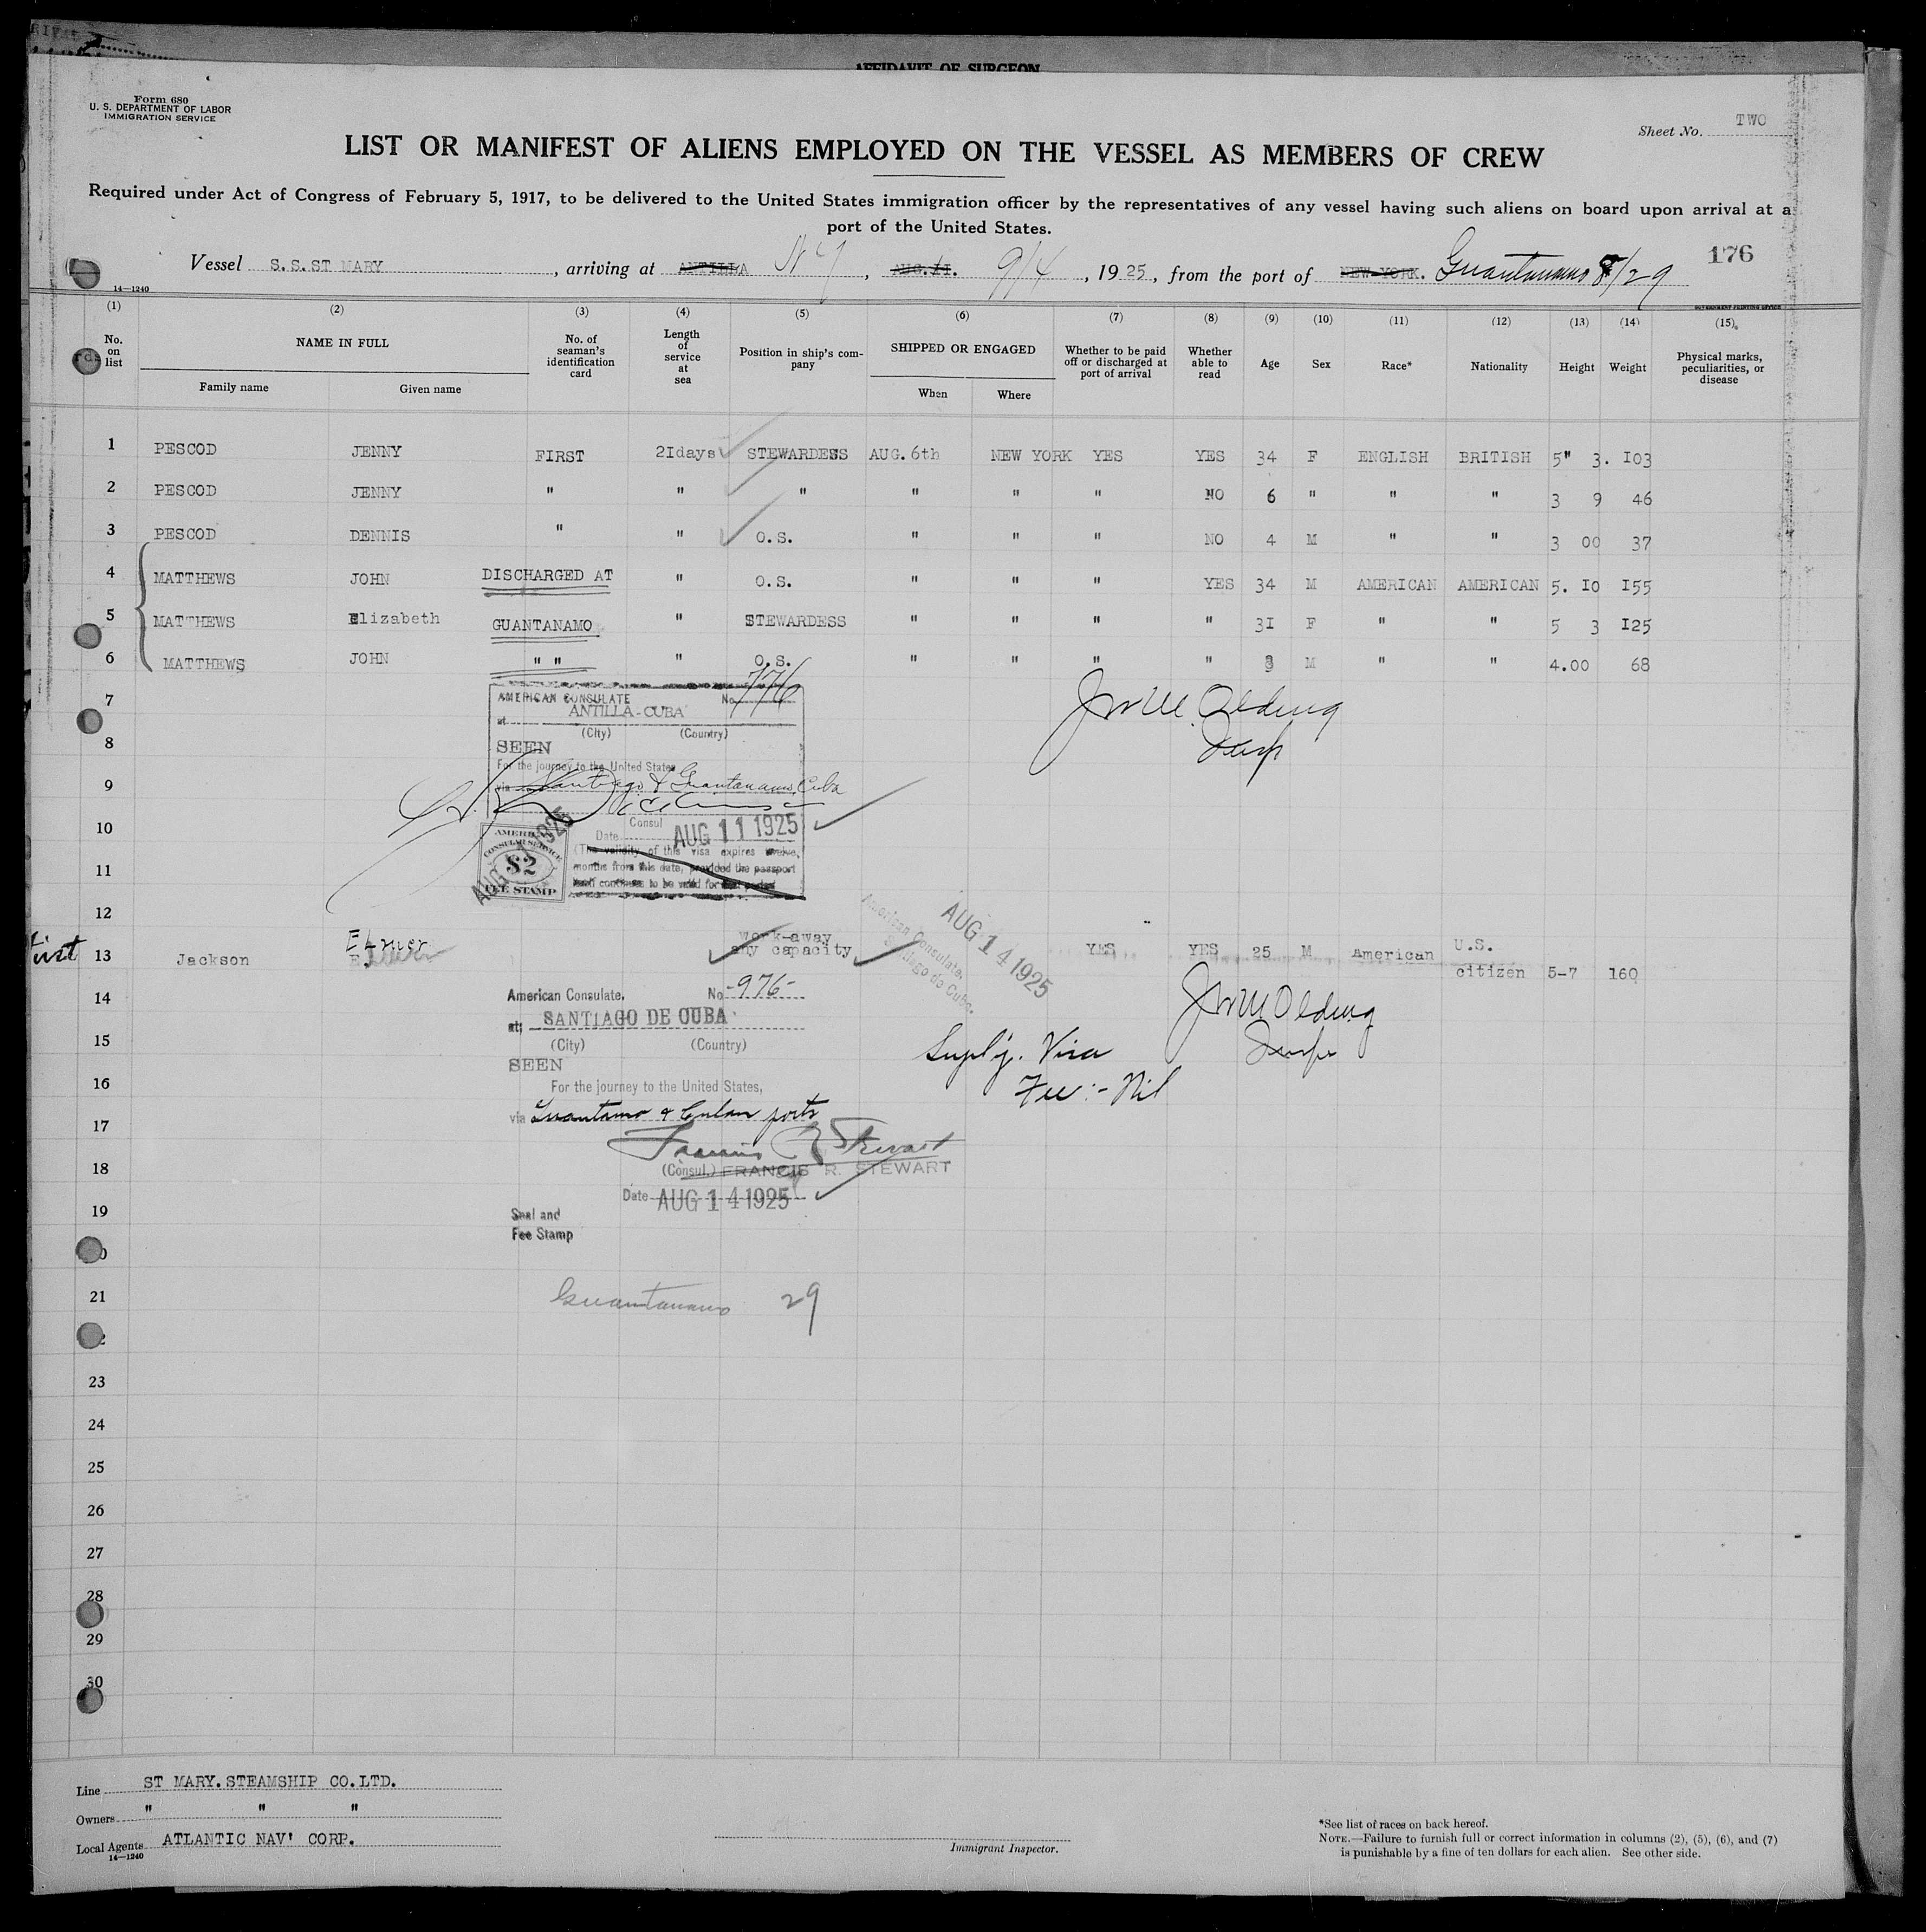 AFFIDAVIT OF SURGEON
Form 680
U. S. DEPARTMENT OF LABOR
IMMIGRATION SERVICE
Sheet No. TWO
LIST OR MANIFEST OF ALIENS EMPLOYED ON THE VESSEL AS MEMBERS OF CREW
Required under Act of Congress of February 5, 1917, to be delivered to the United States immigration officer by the representatives of any vessel having such aliens on board upon arrival at a
port of the United States.
176
Vessel S.S.ST MARY, arriving at ANTILLA NY, AUG.11. 9/4, 1925, from the port of NEW YORK. Guantanamo 8/29
14—1240
(1) (2) (3) (4) (5) (6) (7) (8) (9) (10) (11) (12) (13) (14) (15)
No. on list
NAME IN FULL
Family name Given name
No. of seaman's identification card
Length of service at sea
Position in ship's company
SHIPPED OR ENGAGED
When Where
Whether to be paid off or discharged at port of arrival
Whether able to read
Age
Sex
Race*
Nationality
Height
Weight
Physical marks, peculiarities, or disease
1 PESCOD JENNY FIRST 2Idays STEWARDESS AUG.6th NEW YORK YES YES 34 F ENGLISH BRITISH 5" 3. I03
2 PESCOD JENNY " " " " " " NO 6 " " " 3 9 46
3 PESCOD DENNIS " " O.S. " " " NO 4 M " " 3 00 37
4 MATTHEWS JOHN DISCHARGED AT " O.S. " " " YES 34 M AMERICAN AMERICAN 5. IO I55
5 MATTHEWS Elizabeth GUANTANAMO " STEWARDESS " " " " 3I F " " 5 3 I25
6 MATTHEWS JOHN " " " O.S. " " " " 8 M " " 4.00 68
7
AMERICAN CONSULATE No. 776
at ANTILLA-CUBA
(City) (Country)
Jno M. Olding
Insp
8
SEEN
For the journey to the United States
9
via Santiago & Guantanamo, Cuba
10
Consul
Date AUG 11 1925
(The validity of this visa expires twelve,
11
months from this date, provided the passport
itself continues to be valid for that period
AMERICAN
CONSULAR SERVICE
$2
FEE STAMP
12
American Consulate,
Santiago de Cuba.
AUG 14 1925
First 13 Jackson Elmer work-away any capacity YES YES 25 M American U.S. citizen 5-7 160
14
American Consulate, No -976-
at: SANTIAGO DE CUBA
Jno M Olding
Insp
15
(City) (Country)
SEEN
Suplj. Visa
16
For the journey to the United States,
Fee:- Nil
via Guantamo & Cuban ports
17
Francis R Stewart
18
(Consul.) FRANCIS R. STEWART
Date AUG 14 1925
19
Seal and
Fee Stamp
21
Guantanamo 29
23
24
25
26
27
28
29
30
Line ST MARY.STEAMSHIP CO.LTD.
Owners " " "
Local Agents ATLANTIC NAV' CORP.
14—1240
Immigrant Inspector.
*See list of races on back hereof.
NOTE.—Failure to furnish full or correct information in columns (2), (5), (6), and (7)
is punishable by a fine of ten dollars for each alien. See other side.